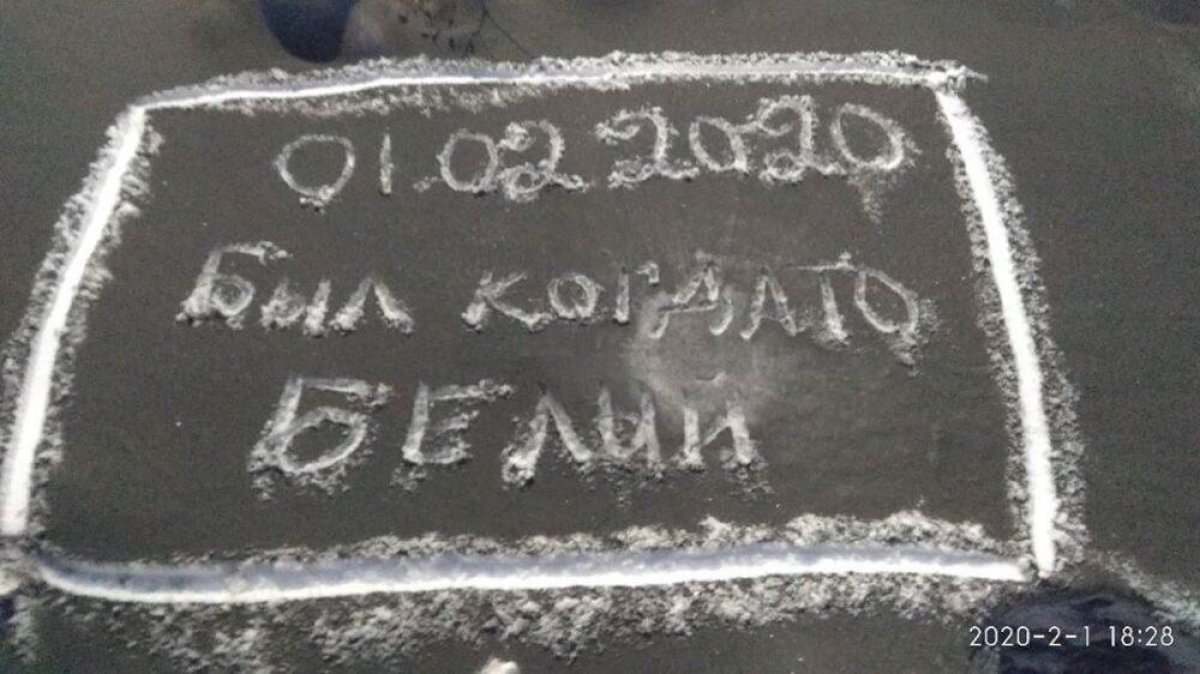 01.02 2020
Был КОГДАТО
БЕЛЫЙ
2020-2-1 18:28